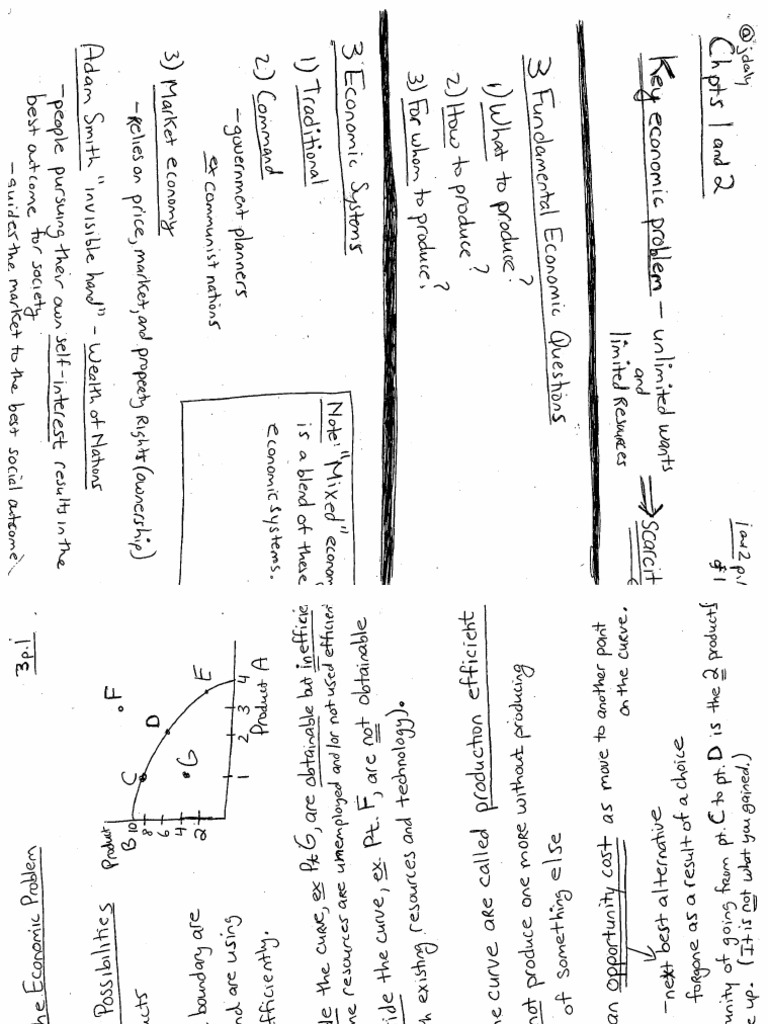 @jdaly
Chpts 1 and 2
1 and 2 p.1
Key economic problem - unlimited wants
and
limited Resources
3 Fundamental Economic Questions
1) What to produce?
2) How to produce?
3) For whom to produce?
3 Economic Systems
1) Traditional
2.) Command
- government planners
ex communist nations
3) Market economy
- Relies on price, market, and property Rights (ownership)
Note: "Mixed"
is a blend of these
economic systems.
Adam Smith "invisible hand" - Wealth of Nations
- people pursuing their own self-interest results in the
best outcome for society
- guides the market to the best social outcome
Economic Problem
3 p.1
Possibilities
boundary are
are using
Product
B 10
8
6
4
2
C
D
E
F
G
1
2
3
4
Product A
the curve, ex Pt G, are obtainable but
resources are unemployed and/or not used
the curve, ex. Pt. F, are not obtainable
existing resources and technology).
curve are called production efficient
not produce one more without producing
of something else
an opportunity cost as move to another point
on the curve.
- next best alternative
forgone as a result of a choice
of going from pt. C to pt. D is the 2 products
up. (It is not what you gained.)